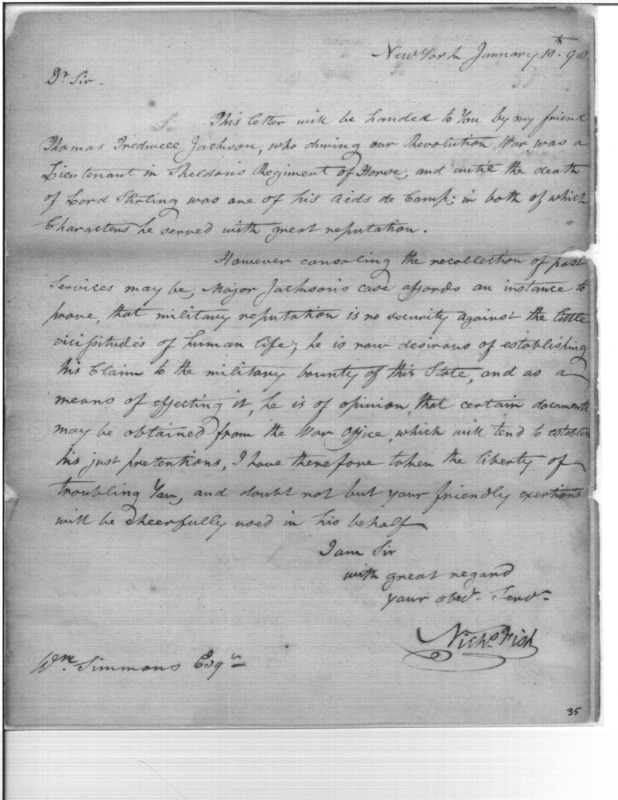 New York January 10th 98
Dr Sir.
This letter will be handed to You by my friend
Thomas Tredwell Jackson, who during our Revolution War was a
Lieutenant in Sheldon's Regiment of Horse, and until the death
of Lord Stirling was one of his aids de Camp; in both of which
Characters he served with great reputation.
However consoling the recollection of past
Services may be, Major Jackson's case affords an instance to
prove, that military reputation is no security against the little
vicissitudes of human life; he is now desirous of establishing
his Claim to the military bounty of this State, and as a
means of effecting it, he is of opinion, that certain documents
may be obtained from the War Office, which will tend to establish
his just pretentions, I have therefore taken the liberty of
troubling You, and doubt not but your friendly exertions
will be cheerfully used in his behalf
I am Sir
with great regard
your obedt. Servt.
Nichs Fish
Wm Simmons Esqr
35